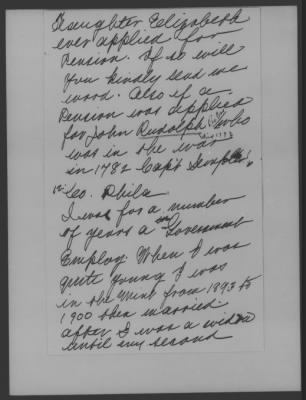 Daughter Elizabeth
ever applied for
Pension. If so will
you kindly send me
word. Also if a
Pension was applied
for John Rudolph who
was in the war
in 1782 Capt
Co. Phila
I was for a number
of years a Government
Employ When I was
quite young I was
in the Mint from 1893 to
1900 then married
after I was a widow
until my second